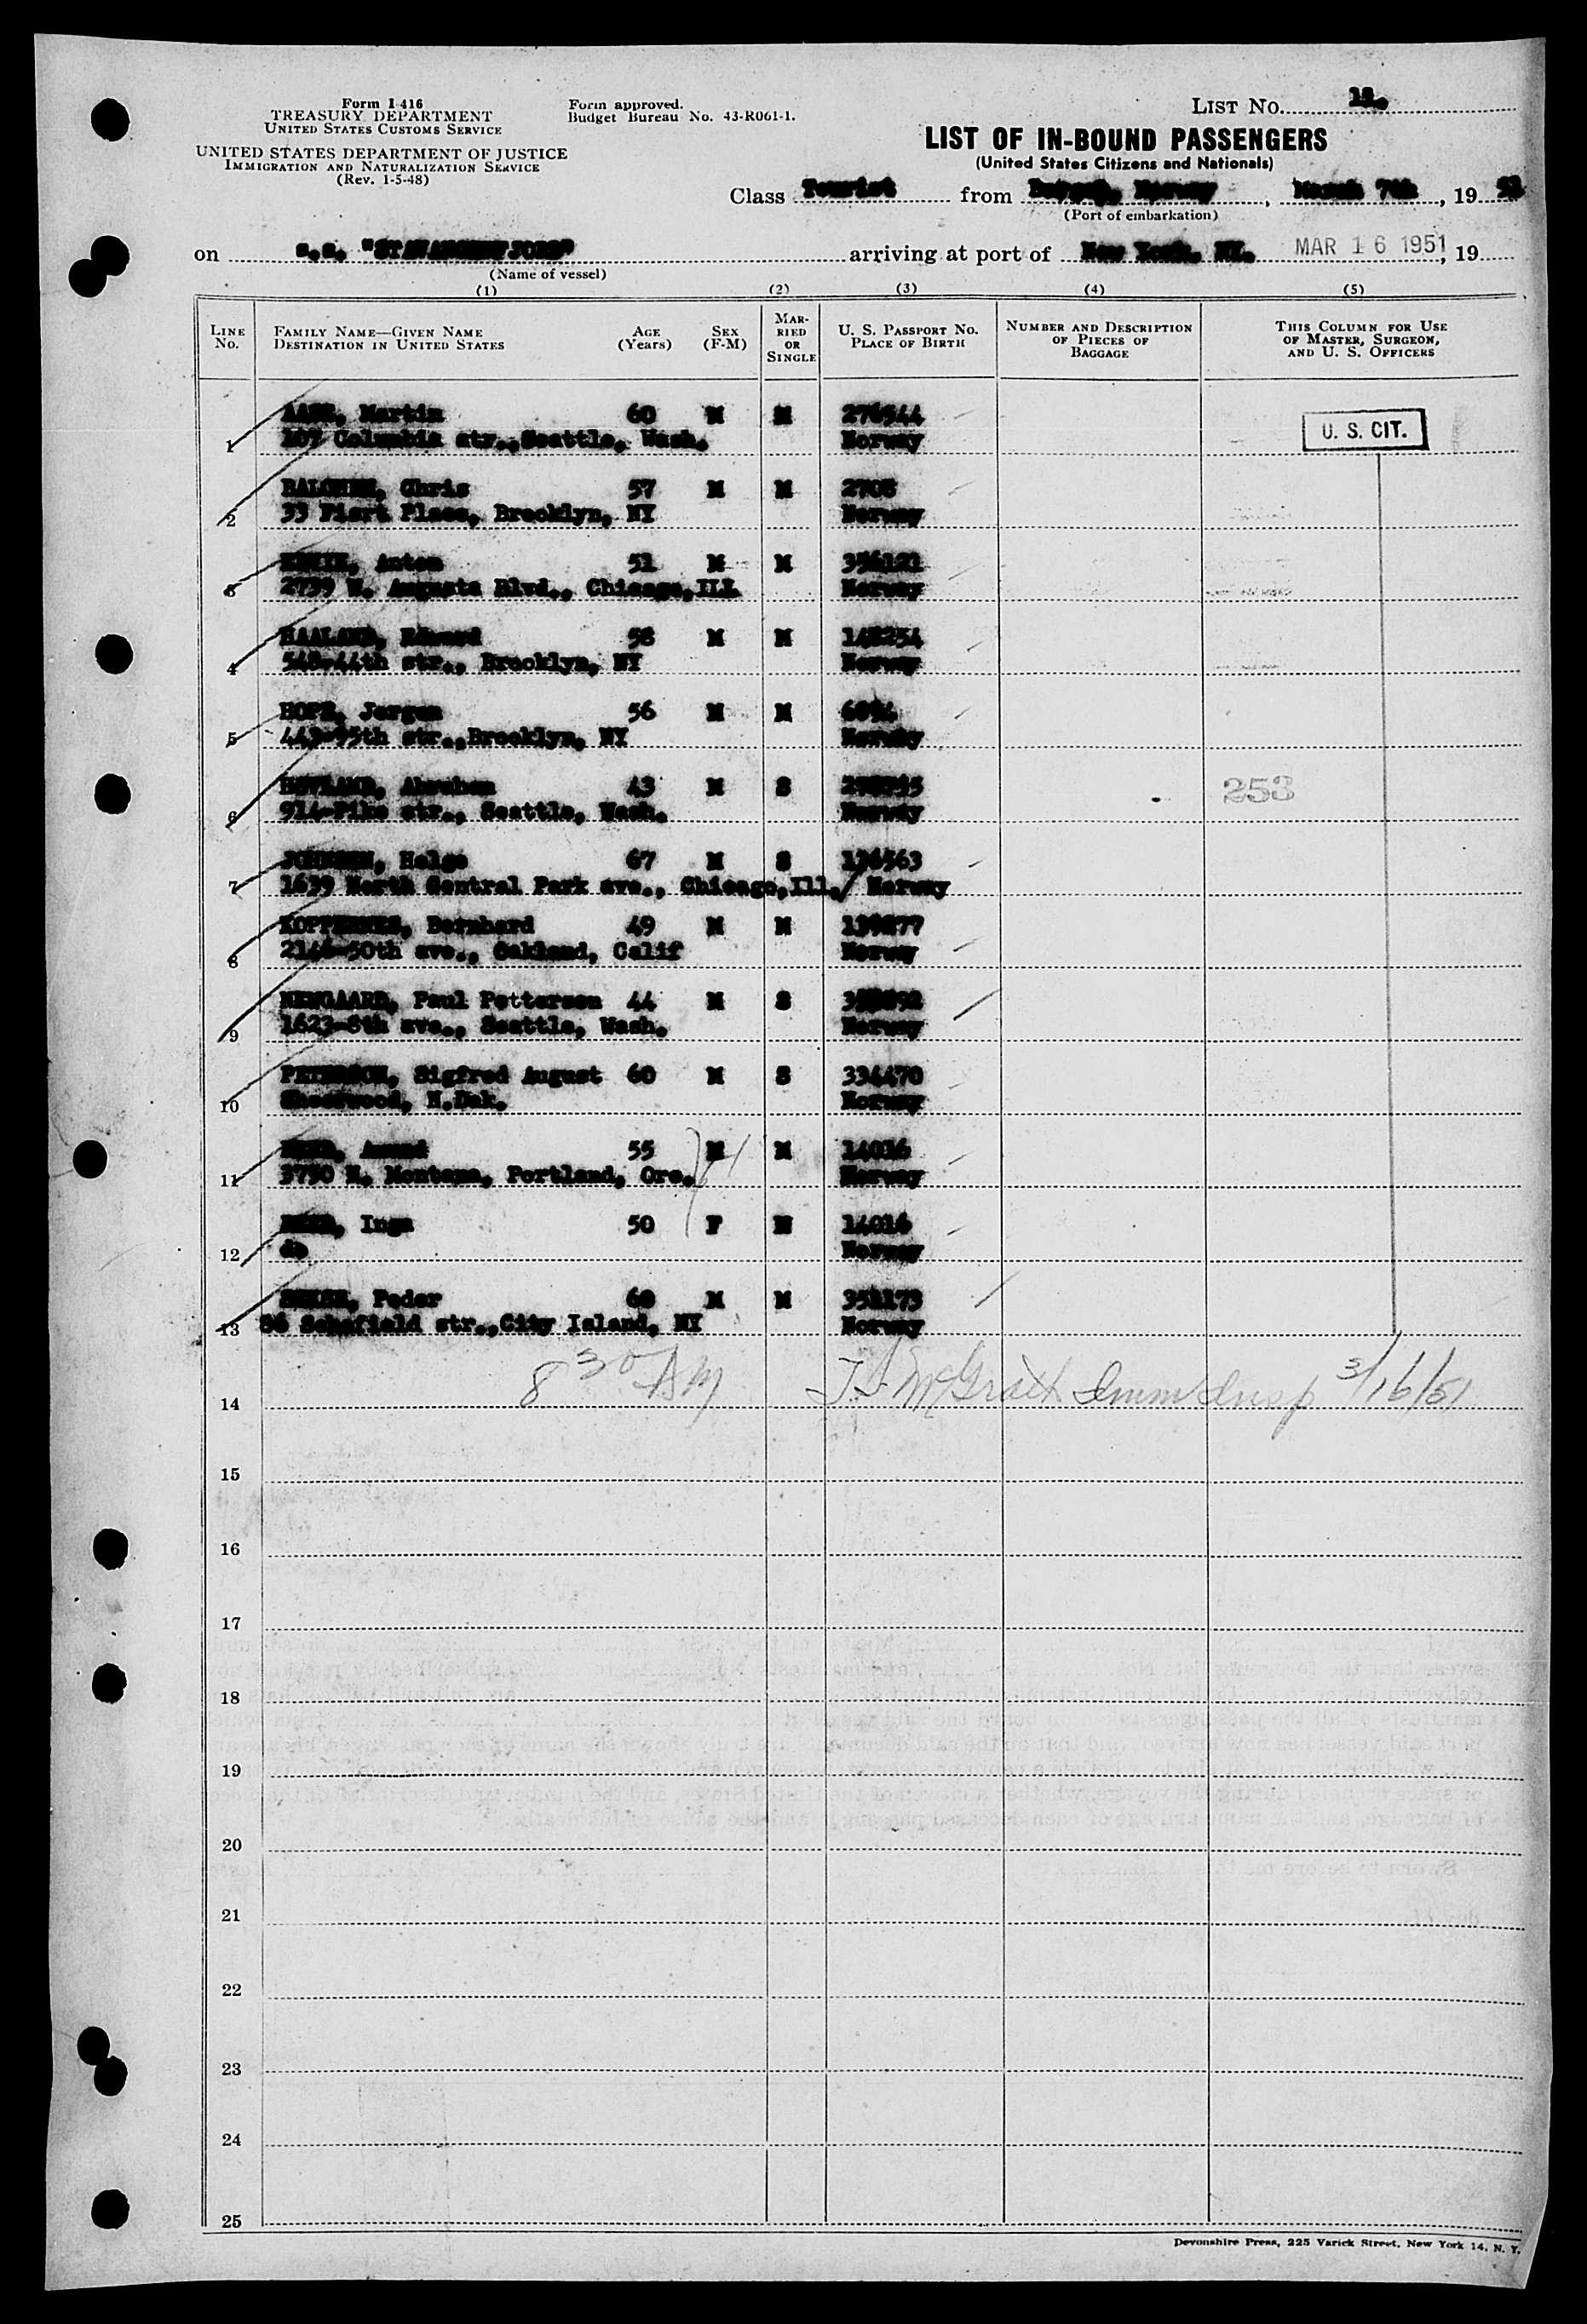 Form I-416
TREASURY DEPARTMENT
UNITED STATES CUSTOMS SERVICE
UNITED STATES DEPARTMENT OF JUSTICE
IMMIGRATION AND NATURALIZATION SERVICE
(Rev. 1-5-48)
Form approved.
Budget Bureau No. 43-R061-1.
LIST No.
LIST OF IN-BOUND PASSENGERS
(United States Citizens and Nationals)
Class Tourist from Bergen, Norway, March 7th, 19 51
(Port of embarkation)
on s.s. "STAVANGERFJORD" arriving at port of New York, NY. MAR 16 1951, 19
(Name of vessel)
(1) (2) (3) (4) (5)
LINE No. FAMILY NAME—GIVEN NAME DESTINATION IN UNITED STATES AGE (Years) SEX (F-M) MARRIED OR SINGLE U. S. PASSPORT No. PLACE OF BIRTH NUMBER AND DESCRIPTION OF PIECES OF BAGGAGE THIS COLUMN FOR USE OF MASTER, SURGEON, AND U. S. OFFICERS
Martin 60 M M 276544
1 107 Columbia str., Seattle, Wash. Norway
U. S. CIT.
Chris 57 M M 2708
2 33 Place, Brooklyn, NY Norway
Anton 51 M M 356121
3 2739 W. Augusta Blvd., Chicago, Ill Norway
HAALAND, Edward 58 M M 148254
4 548-44th str., Brooklyn, NY Norway
HOPE, Jorgen 56 M M
5 443-95th str., Brooklyn, NY Norway
HOVLAND, Abraham 43 M S
6 914-Pike str., Seattle, Wash. Norway
253
JOHNSEN, Helge 67 M S 136563
7 1639 North Central Park ave., Chicago, Ill. / Norway
Bernhard 49 M M
8 50th ave., Oakland, Calif Norway
Paul Petterson 44 M S
9 1623-8th ave., Seattle, Wash. Norway
PETERSON, Sigfred August 60 M S 334470
10 Sherwood, N.Dak. Norway
55 M M 14016
11 N. Montana, Portland, Ore. Norway
Inga 50 F M 14016
12 do Norway
Peder 60 M M 351173
13 86 Schofield str., City Island, NY Norway
8 30 AM McGrath Imm Insp 3/16/51
14
15
16
17
18
19
20
21
22
23
24
25
Devonshire Press, 225 Varick Street, New York 14, N. Y.